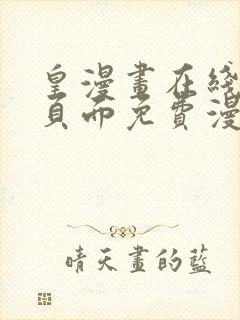 皇漫畫在綫
頁面免費漫
晴天畫的藍